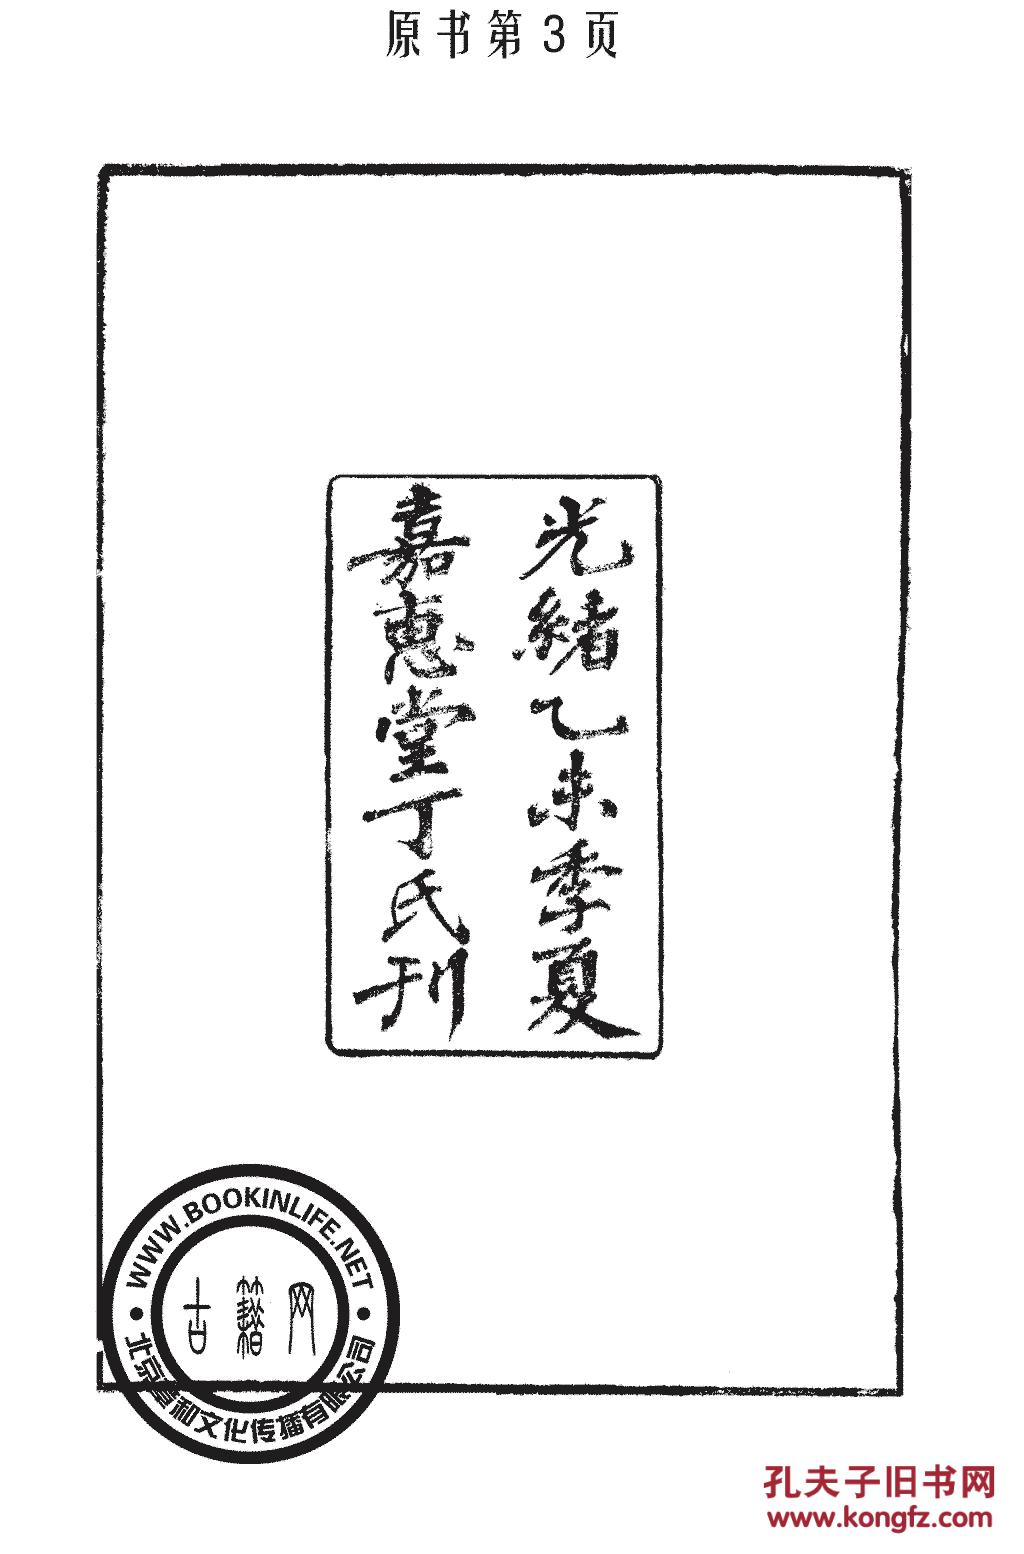 原书第3页
光緒乙未季夏
嘉惠堂丁氏刊
WWW.BOOKINLIFE.NET
古籍网
文化传播有限公司
孔夫子旧书网
www.kongfz.com